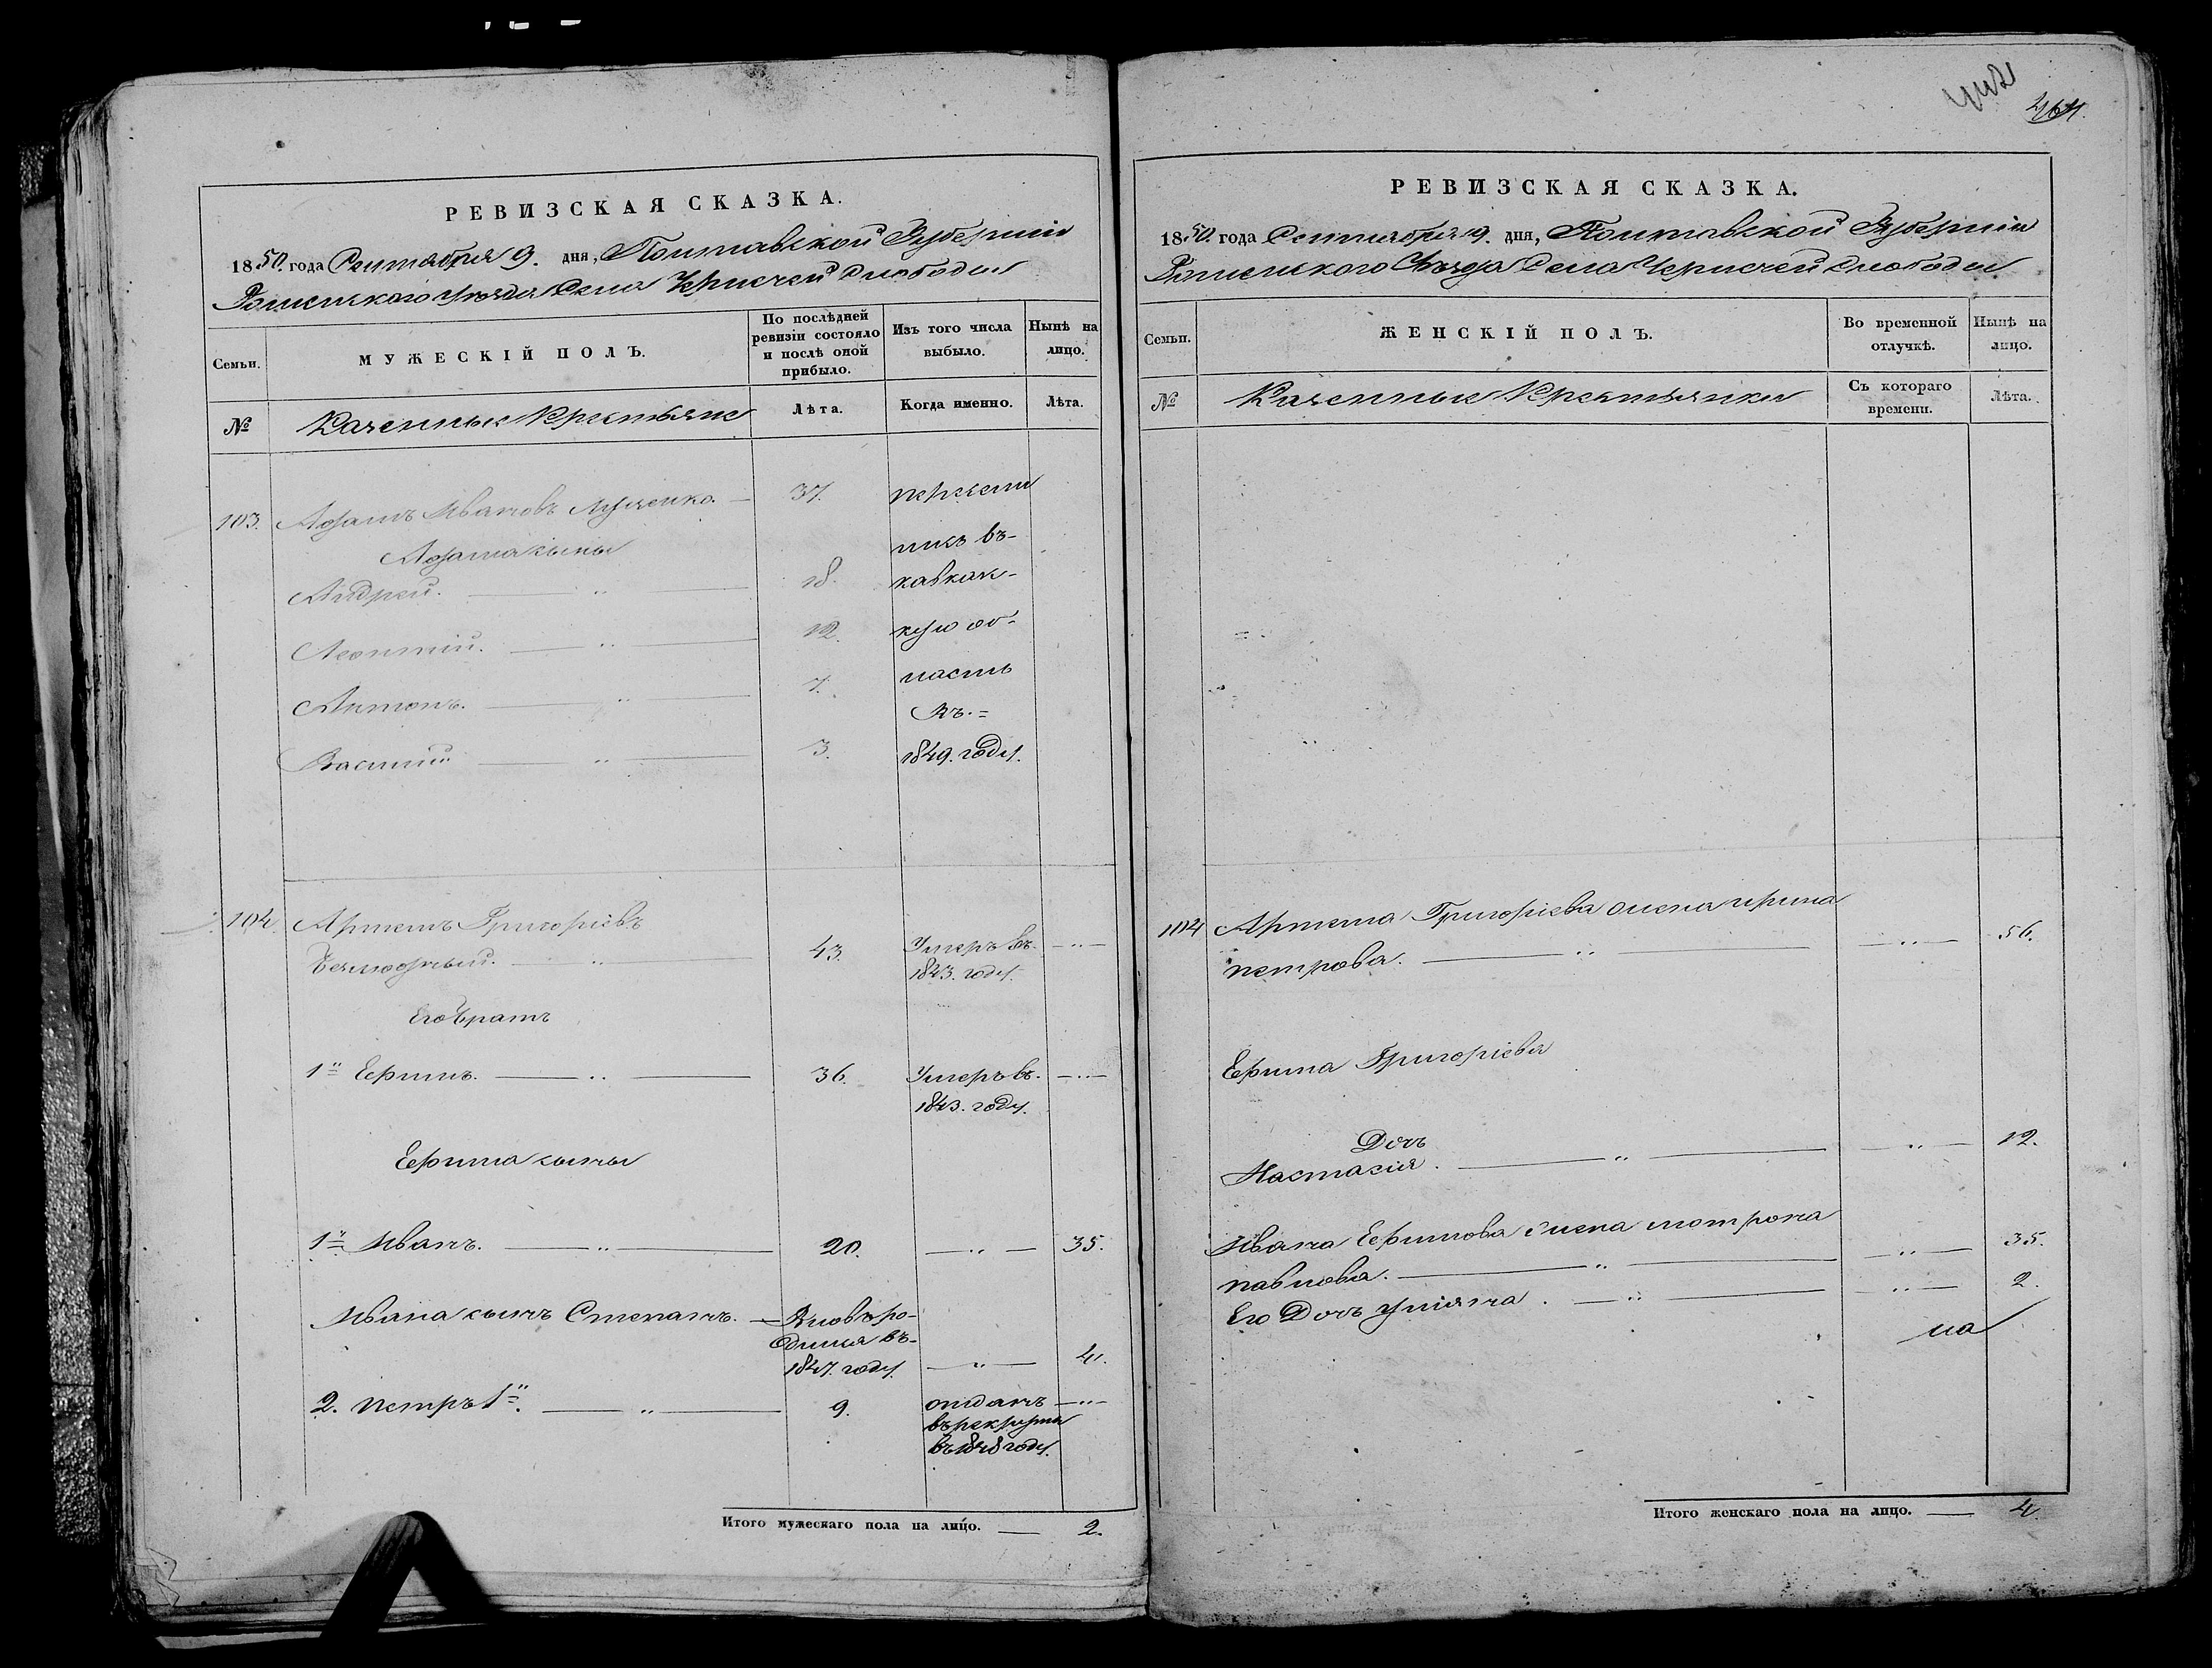 464.
РЕВИЗСКАЯ СКАЗКА.
1850. года Сентября 9. дня, Полтавской Губернии
Роменского уезда Села Чернечей Слободы
Семьи.
МУЖЕСКІЙ ПОЛЪ.
По послѣдней ревизіи состояло и послѣ оной прибыло.
Изъ того числа выбыло.
Нынѣ на лицо.
№
Казенные Крестьяне
Лѣта.
Когда именно.
Лѣта.
103. Адамъ Ивановъ Луценко. — 37. пересели
Адама сыны
никъ въ-
Андрей. — 18. кавказ-
Леонтій. — 12. кую об-
Антонъ. — 7. ласть
Въ. =
Василій — 3. 1849. году.
104. Артемъ Григоріевъ
43. Умеръ въ.
1843. году.
Его братъ
1й Ефимъ. — 36. Умеръ въ.
1843. году.
Ефима сыны
1й Иванъ. — 20. — 35.
Ивана сынъ Степанъ. — Вновь ро-
дился въ-
1847. году — 4.
2. петръ 1й. — 9. отданъ
въ рекруты
въ 1848 году.
Итого мужескаго пола на лицо. — 2.
РЕВИЗСКАЯ СКАЗКА.
1850. года Сентября 9. дня, Полтавской Губерніи
Роменского Уезда Села Чернечей Слободы
Семьи.
ЖЕНСКІЙ ПОЛЪ.
Во временной отлучкѣ.
Нынѣ на лицо.
№
Казенные Крестьянки
Съ котораго времени.
Лѣта.
104 Артема Григоріева жена ирина
петрова. — 56.
Ефима Григоріева
Дочь
Настасія. — 12.
Ивана Ефимова жена мотрона
павлова. — 35.
Его Дочь уліяна. — 2.
Итого женскаго пола на лицо. — 4.